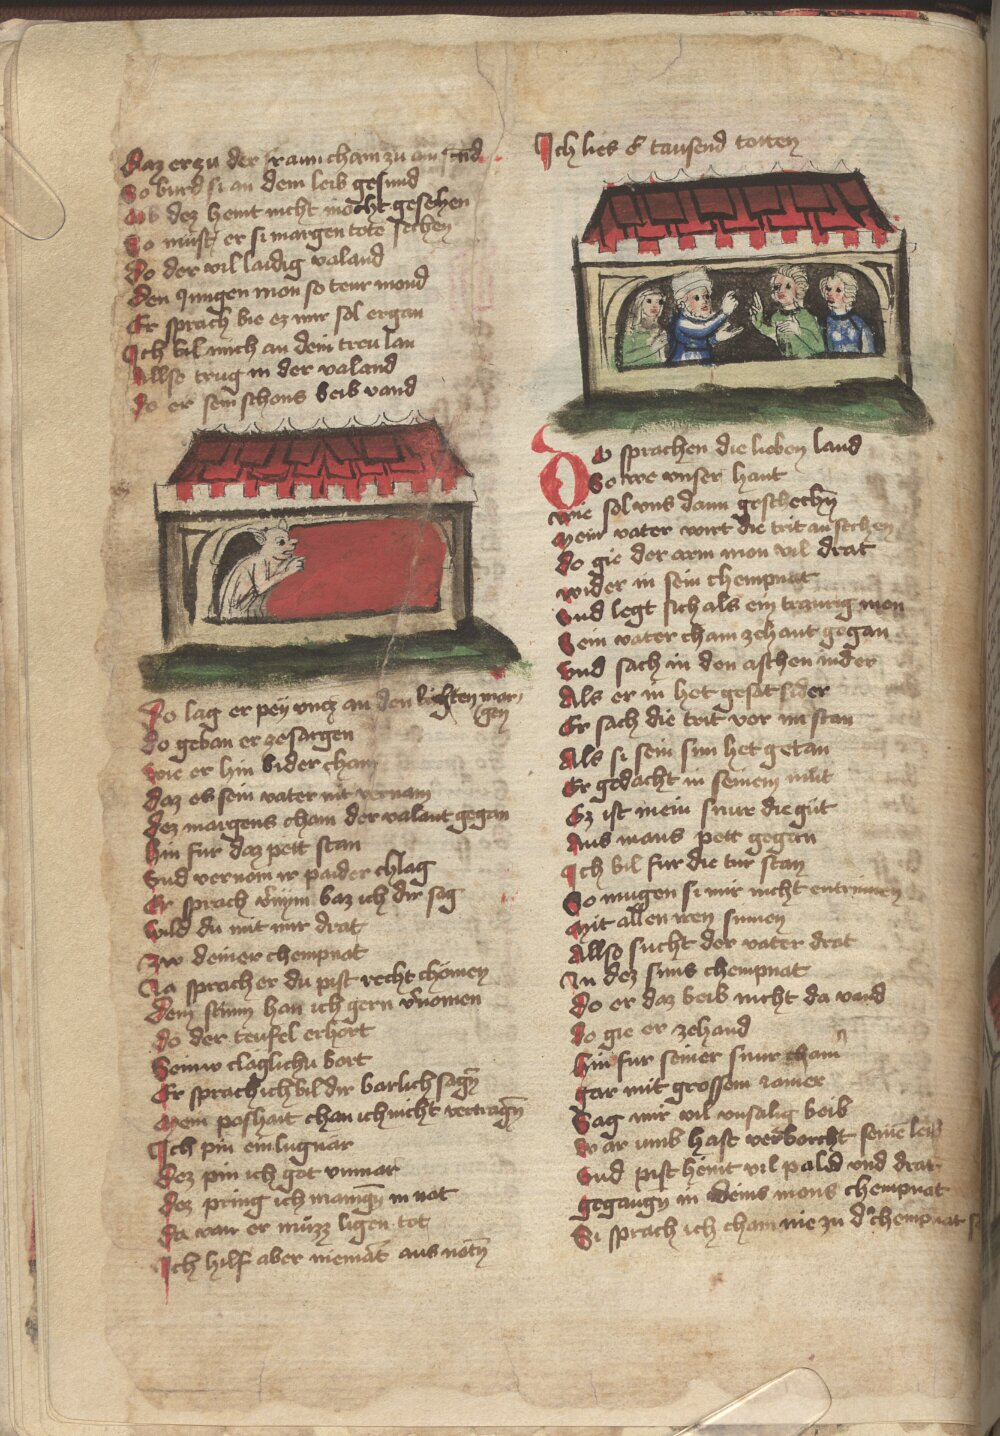 Daz er zu der frawn cham zu ain stund
So burd si an dem leib gesund
Ob dez heint nicht mocht gesehen
So müst er si margen tote sechen
Do der vil laidig valand
Den Jungen mon so teur mond
Er sprach bie ez mir sol ergan
Ich bil mich an dein treu lan
Allso trug in der valand
Do er sein schons beib vand
Do lag er pey vncz an den liechten mor
gen
Do geban er ze sargen
Wie er hin bider cham
Daz es sein vater nit vernam
Dez margens cham der valant gegan
Hin fur daz pett stan
Vnd vernom ir paider chlag
Er sprach vernym baz ich dir sag
Wild du mit mir drat
Zw deiner chempnat
Ja sprach er du pist recht chömen
Dein stimm han ich gern vernomen
Do der teufel erhört
Seinw claglichu bort
Er sprach ich bil dir barlich sagn
Mein poshait chan ich nicht vertragn
Ich pin ein lugnär
Dez pin ich got vnmar
Dez pring ich manign in not
Da von er müzz ligen tot
Ich hilf aber niemat aus notn
Ich lies ee tausend totten
Do sprachen die lieben land
So we vnser hant
Wie sol vns dann geschechn
Mein vater wirt die trit an sechen
Do gie der arm mon vil drat
Wider in sein chempnat
Vnd legt sich als ein trawrig mon
Sein vater cham zehant gegan
Vnd sach in den aschen nider
Als er in het gesät sider
Er sach die trit vor im stan
Als si sein sun het getan
Er gedacht in seinem müt
Ez ist mein snur die güt
Aus mans pett gegan
Ich bil fur die tur stan
So mugen si mir nicht entrinnen
Mit allen iren sinnen
Allso sucht der vater drat
In dez suns chempnat
Do er daz beib nicht da vand
Do gie er zehand
Hin fur seiner snur cham
Gar mit grossem zaner
Sag mir vil vnsalig beib
War umb hast verborcht seinē leib
Vnd pist heint vil pald vnd drat
Gegangn in deins mons chempnat
Si sprach ich cham nie zu der chempnat